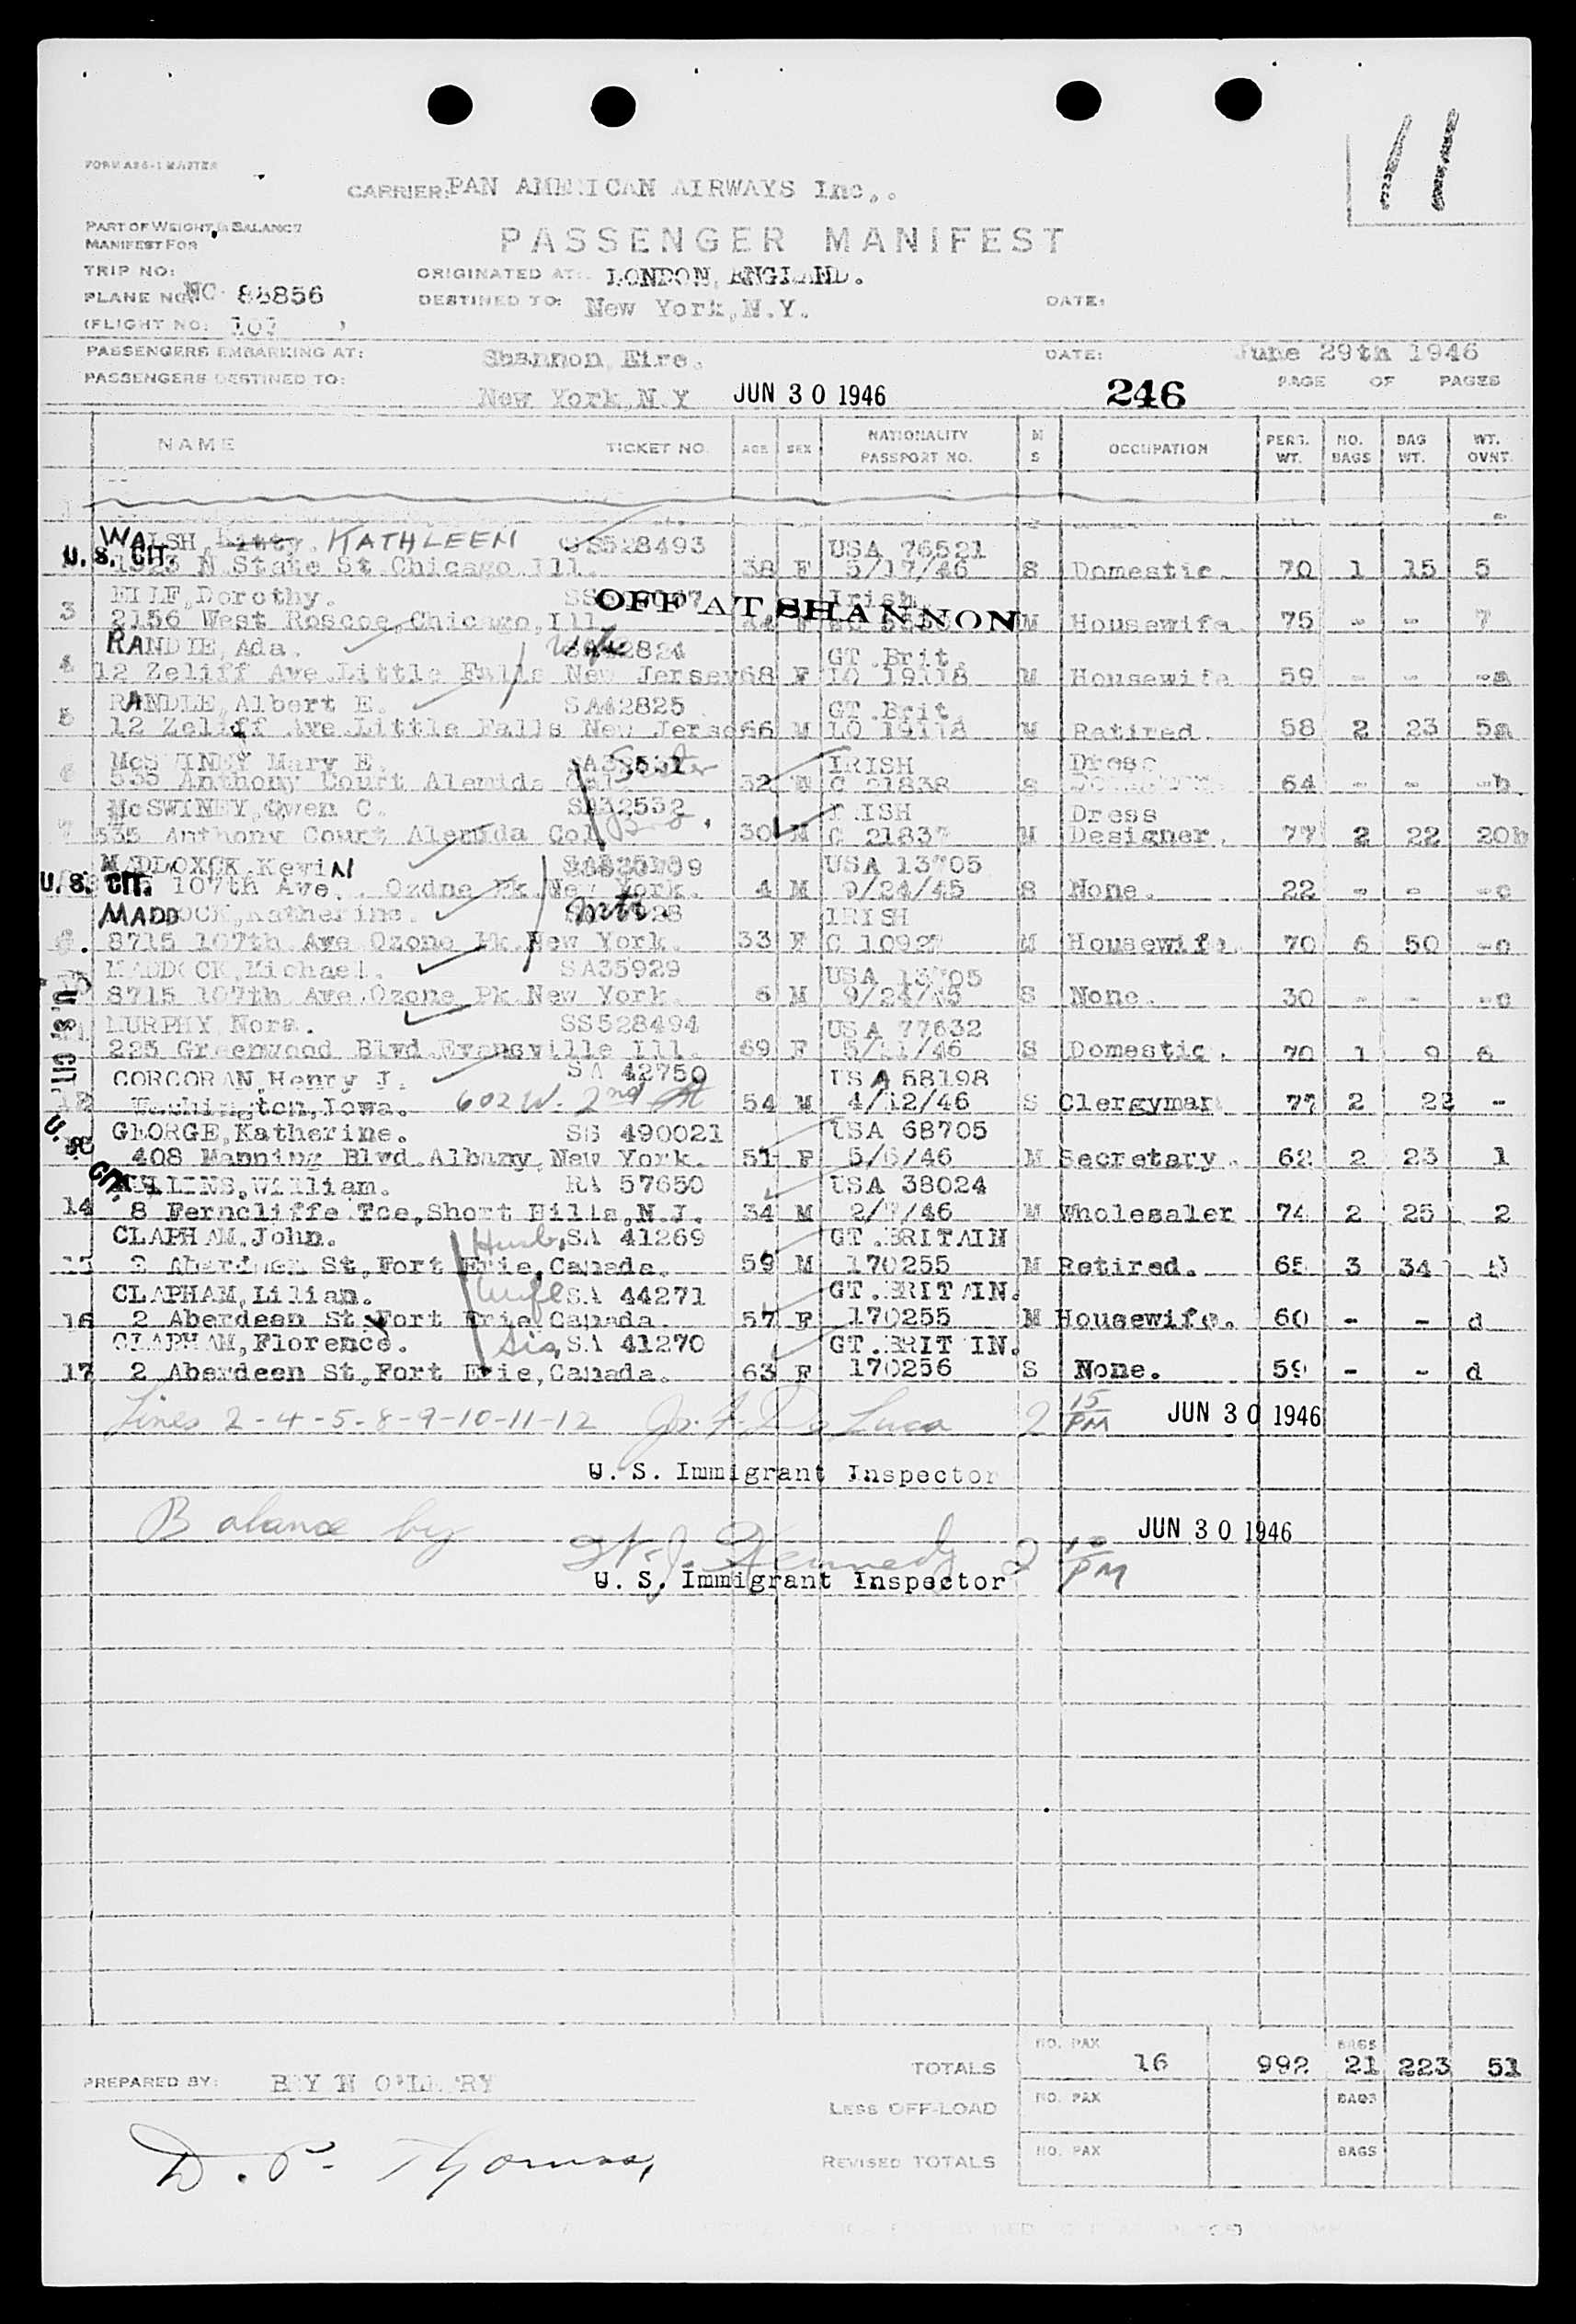 11
FORM A86-1 MASTER
CARRIER: PAN AMERICAN AIRWAYS Inc,.
PART OF WEIGHT & BALANCE
MANIFEST FOR
PASSENGER MANIFEST
TRIP NO:
ORIGINATED AT: LONDON, ENGLAND.
PLANE NO. NC 88856
DESTINED TO: New York, N.Y.
DATE:
(FLIGHT NO: 101 )
PASSENGERS EMBARKING AT: Shannon, Eire. DATE: June 29th 1946
PASSENGERS DESTINED TO: New York N.Y JUN 30 1946 246 PAGE OF PAGES
NAME TICKET NO. AGE SEX NATIONALITY PASSPORT NO. M S OCCUPATION PERS. WT. NO. BAGS BAG WT. WT. OVNT.
WALSH, Kitty. KATHLEEN SS528493 USA 76521
U.S. CIT. 1523 N State St Chicago Ill. 38 F 5/17/46 S Domestic. 70 1 15 5
Dorothy. OFF AT SHANNON Irish
3 2156 West Roscoe, Chicago, Ill. 44 F M Housewife 75 - - 7
RANDLE, Ada. Wife SA42824 GT.Brit.
4 12 Zeliff Ave Little Falls New Jersey 68 F LO 19118 M Housewife 59 - - -a
RANDLE, Albert E. SA42825 GT.Brit.
5 12 Zeliff Ave Little Falls New Jersey 66 M LO 19118 M Retired. 58 2 23 5a
McSWINEY Mary E. Sister IRISH Dress
6 535 Anthony Court Alemida Cal 32 F C 21838 S 64 - - -b
McSWINEY, Owen C. SA32532 Bro. IRISH Dress
7 535 Anthony Court Alemida Cal 30 M C 21837 M Designer. 77 2 22 20b
MADDOXCK, Kevin USA 13705
U.S. CIT. 107th Ave. Ozone Pk, New York. 4 M 9/24/45 S None. 22 - - -c
MADDOCK, Katherine. IRISH
9. 8715 107th Ave Ozone Pk New York. 33 F C 10927 M Housewife 70 6 50 -c
MADDOCK, Michael. SA35929 USA 13705
8715 107th Ave Ozone Pk New York. 6 M 9/24/45 S None. 30 - - -c
U.S. CIT.
MURPHY Nora. SS528494 USA 77632
225 Greenwood Blvd Evansville Ill. 69 F 5/21/46 S Domestic. 70 1 9 6
CORCORAN, Henry J. SA 42750 USA 58198
12 Washington, Iowa. 602 W. 2nd St 54 M 4/12/46 S Clergyman 77 2 22 -
GEORGE, Katherine. SS 490021 USA 68705
408 Manning Blvd. Albany, New York. 51 F 5/6/46 M Secretary. 62 2 23 1
U.S. CIT.
MULLINS, William. RA 57650 USA 38024
14 8 Ferncliffe Tce, Short Hills, N.J. 34 M 2/7/46 M Wholesaler 74 2 25 2
CLAPHAM, John. Husb, SA 41269 GT.BRITAIN
15 2 Aberdeen St, Fort Erie, Canada. 59 M 170255 M Retired. 65 3 34
CLAPHAM, Lilian. Wife SA 44271 GT.BRITAIN.
16 2 Aberdeen St, Fort Erie, Canada. 57 F 170255 M Housewife. 60 - - d
CLAPHAM, Florence. Sis, SA 41270 GT.BRITAIN.
17 2 Aberdeen St, Fort Erie, Canada. 63 F 170256 S None. 59 - - d
Lines 2-4-5-8-9-10-11-12 Jos. A. De Luca 2 15 PM JUN 30 1946
U. S. Immigrant Inspector
Balance by JUN 30 1946
W. J. Kennedy 2 PM
U. S. Immigrant Inspector
TOTALS NO. PAX 16 992 BAGS 21 223 51
PREPARED BY:
LESS OFF-LOAD NO. PAX BAGS
REVISED TOTALS NO. PAX BAGS
D. P. Thomas,